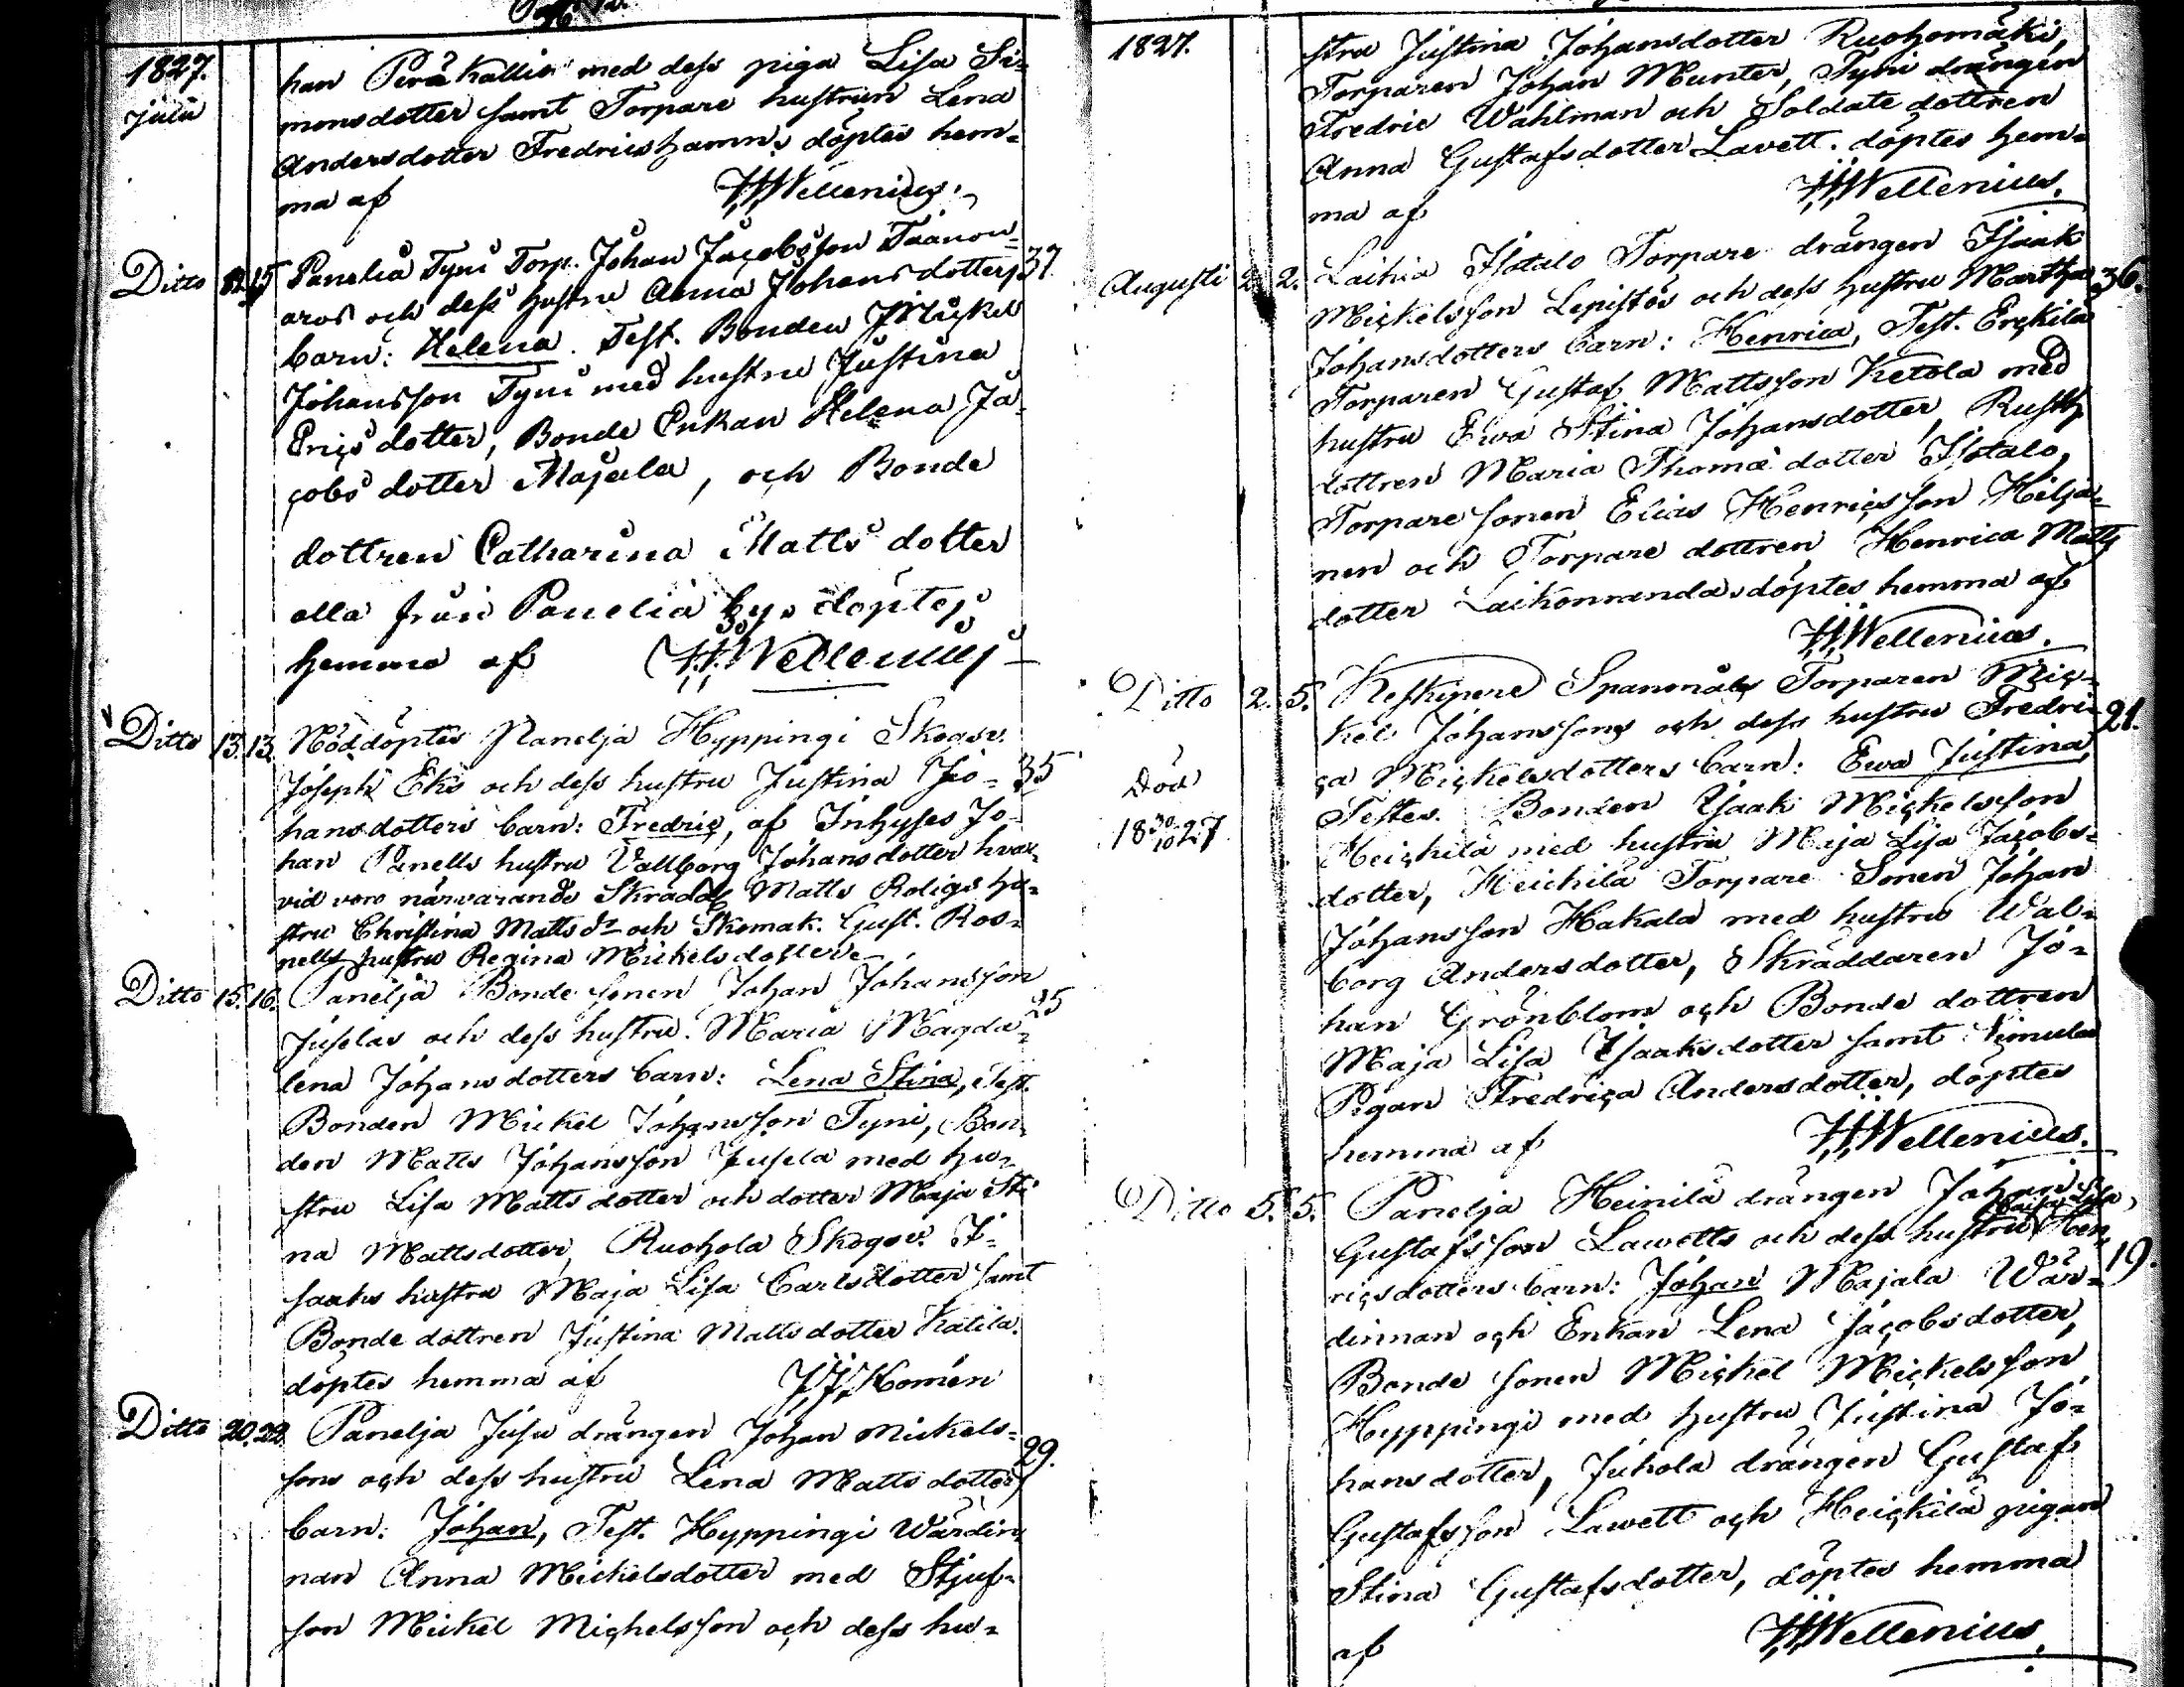 1827.
Julii
han Peräkallio med dess piga Lisa Si-
monsdotter samt Torpare hustrun Lena
Andersdotter Fredricshamn, döptes hem-
ma af HHWellenius.
Ditto 15 Panelia Tyni Torp. Johan Jacobsson Taanon- 37.
aros och dess hustru Anna Johansdotters
barn: Helena. Test. Bonden Mickel
Johansson Tyni med hustru Justina
Ericsdotter, Bonde Enkan Helena Ja-
cobsdotter Majala, och Bonde
dottren Catharina Matts dotter
alla från Panelia by, döptes
hemma af H.H.Wellenius
Ditto 13. 13. Nöddöptes Panelja Hyppingi Skogsv.
Joseph Eks och dess hustru Justina Jo- 35
hansdotters barn: Fredric, af Inhyses Jo-
han Panells hustru Vallborg Johansdotter hvar-
vid voro närvarande Skradd. Matts Roligs hu-
stru Christina Matts dr och Skomak. Gust. Ros-
nells hustru Regina Mickelsdotter
Ditto 15. 16. Panelja Bonde sonen Johan Johansson
Juselas och dess hustru Maria Magda- 35
lena Johansdotters barn: Lena Stina, Test.
Bonden Mickel Johansson Tyni, Bon-
den Matts Johansson Jusela med hu-
stru Lisa Mattsdotter och dotter Maja Sti
na Mattsdotter, Ruohola Skogsv. I-
saaks hustru Maja Lisa Carlsdotter samt
Bonde dottren Justina Mattsdotter Katila.
döptes hemma af JJKomén
Ditto 20. 22. Panelja Jusu drängen Johan Mickels-
sons och dess hustru Lena Mattsdotters 29.
barn: Johan, Test. Hyppingi Wärdin-
nan Anna Mickelsdotter med Stjuf-
son Mickel Michelsson och dess hu-
1827.
stru Justina Johansdotter Ruohomäki,
Torparen Johan Munter, Tyni drängen
Fredric Wahlman och Soldate dottren
Anna Gustafsdotter Lavett. döptes hem-
ma af HHWellenius.
Augusti 2. 2. Laihia Isotalo Torpare drängen Isaak
Mickelsson Lepistös och dess hustru Martha 36.
Johansdotters barn: Henrica, Test. Erckilä
Torparen Gustaf Mattsson Ketola med
hustru Ewa Stina Johansdotter, Rusth.
dottren Maria Thomædotter Isotalo,
Torpare sonen Elias Henricsson Hilja-
nen och Torpare dottren Henrica Matts
dotter Laikonranda, döptes hemma af
HHWellenius.
Ditto 2. 5. Keskipere Spannmåls Torparen Mic-
kel Johanssons och dess hustru Fredri- 21.
ca Mickelsdotters barn: Ewa Justina,
Död
18 30/10 27
Testes. Bonden Isaak Mickelsson
Heickilä med hustru Maja Lisa Jacobs-
dotter, Heickilä Torpare Sonen Johan
Johansson Hakala med hustru Wal-
borg Andersdotter, Skräddaren Jo-
han Grönblom och Bonde dottren
Maja Lisa Isaaksdotter samt
Pigan Fredrica Andersdotter, döptes
hemma af HHWellenius.
Ditto 5. 5. Panelja Heinilä drängen Johan
Gustafsson Lawetts och dess hustru Caisa Lisa Hen-
ricsdotters barn: Johan Majala Wär- 19.
dinnan och Enkan Lena Jacobsdotter,
Bonde sonen Mickel Mickelsson
Hyppingi med hustru Justina Jo-
hansdotter, Jukola drängen Gustaf
Gustafsson Lawett och Heickilä pigan
Stina Gustafsdotter, döptes hemma
af HHWellenius.